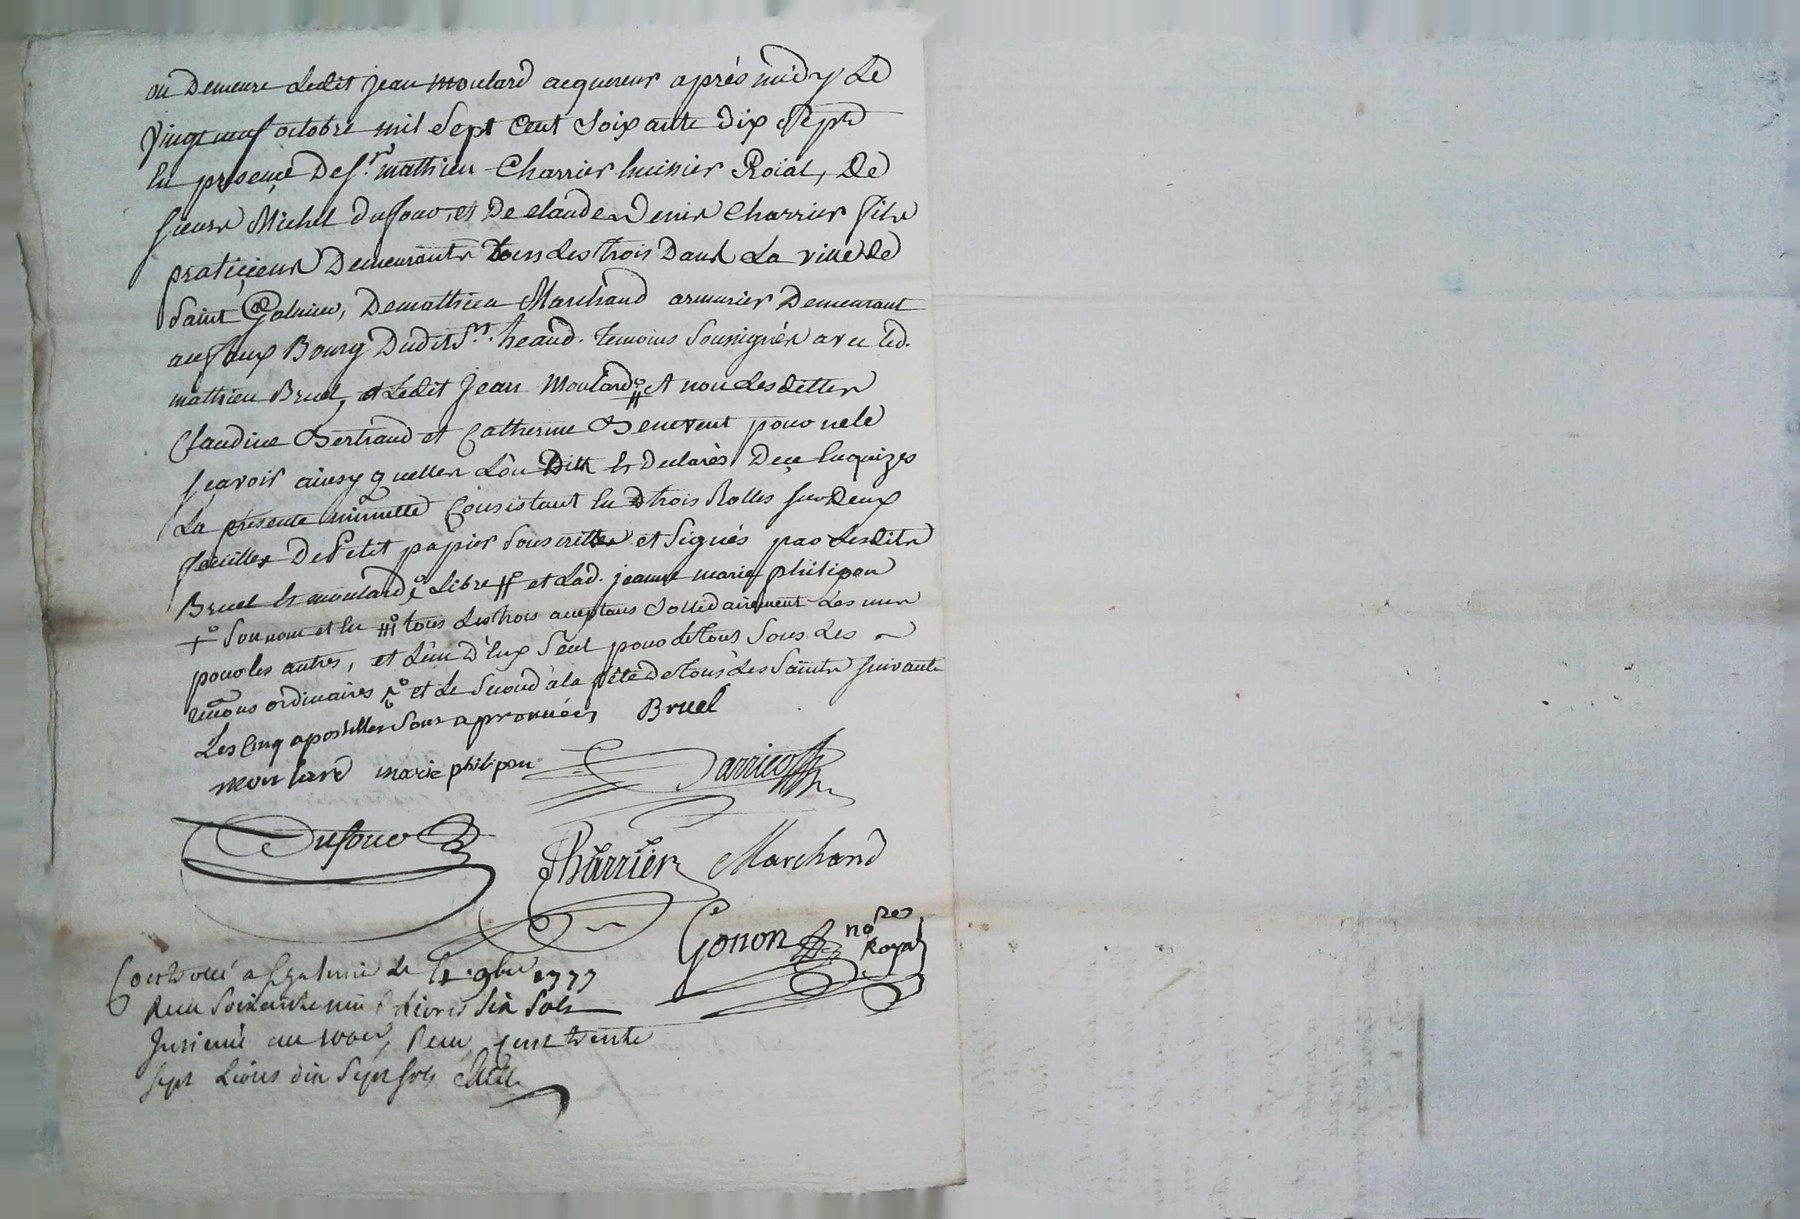 ou Demeure Ledit jean moulard acquereur aprés midy Le
vingt neuf octobre mil Sept Cent Soixante dix Sept
En presence De Sr. mathieu Charrier huissier Roial, De
sieurs Michel dufour, et De claude Denis Charrier fils
praticiens Demeurants tous Les trois Dans La ville de
Saint Galmier, De mathieu Marchand armurier Demeurant
au faux Bourg Dudit St. heand. temoins Soussignés avec led.
mathieu Bruel, et Ledit Jean Moulard #° et non Lesdittes
Claudine Bertrand et Catherine Benevent pour ne le
sçavoir ainsy quelles L'on Dit et declarés De ce Enquizes
La présente minutte Consistant En trois Rolles sur deux
feuilles De Petit papier Souscrittes et Signés par Lesdits
Bruel et moulard, Libre #° et Lad. jeanne marie philipon
+° Son nom et En #° tous Les trois acceptans Sollidairement Les uns
pour les autres, et L'un D'eux Seul pour le tout Sous Les
renons ordinaires et Le Second à la fête de Tous Les Saints suivante
Les Cinq apostilles Sont aprouvées Bruel
moulard marie philipon Darricot
Dufour Charrier Marchand
Gonon nore Royal
Controllé a St galmier Le 9bre 1777
Recu Soixante livres Six Sols
Insinué au Recu Cent trente
Sept Livres dix Sept sols